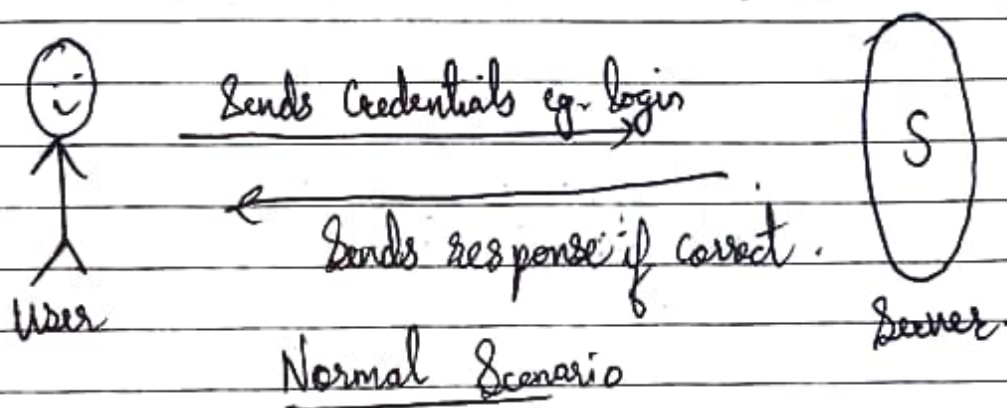 Sends Credentials eg. login
S
Sends response if correct.
User
Server.
Normal Scenario